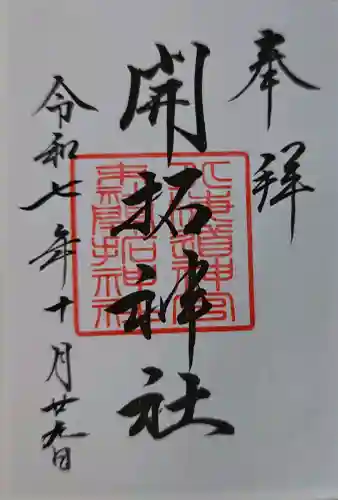 奉拝
開拓神社
北海道神宮
末社開拓神社
令和七年十月廿九日